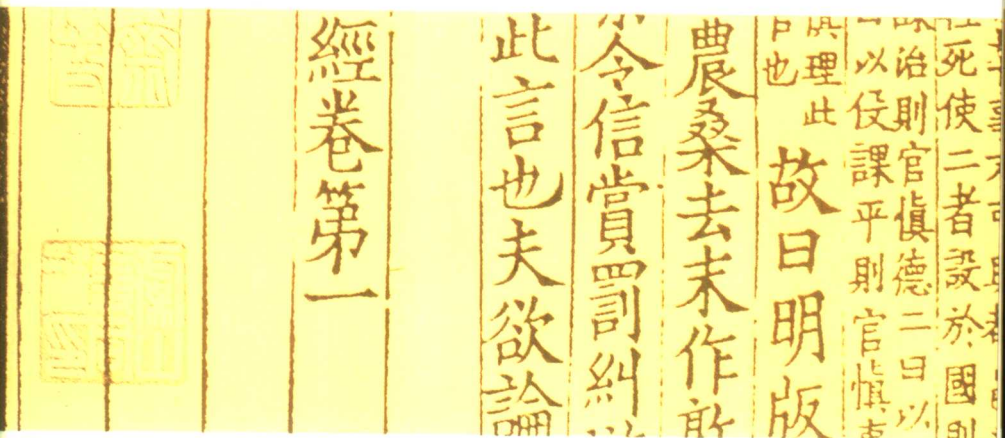 死使二者設於國則
治則官慎德二曰以
以役課平則官慎
慎理此
官也
故曰明版
農桑去末作敢
令信賞罰糾
此言也夫欲論
經卷第一